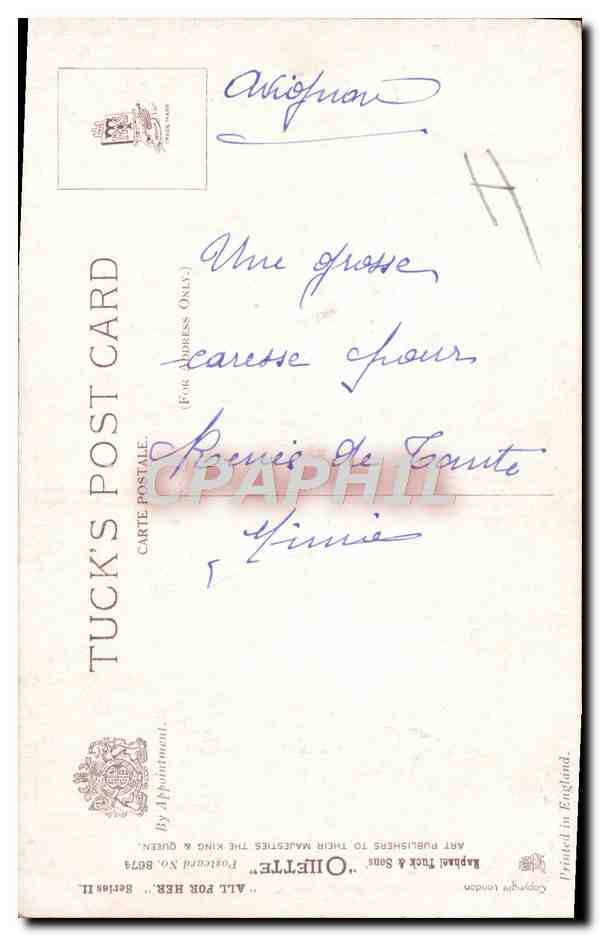 Avignon
Une grosse
caresse pour
de Tante
Mimie
TUCK'S POST CARD
CARTE POSTALE.
(FOR ADDRESS ONLY.)
TRADE MARK
By Appointment.
CPAPHIL
"ALL FOR HER." SERIES II.
Raphael Tuck & Sons' "OILETTE" Postcard No. 8674
ART PUBLISHERS TO THEIR MAJESTIES THE KING & QUEEN.
Copyright London
Printed in England.